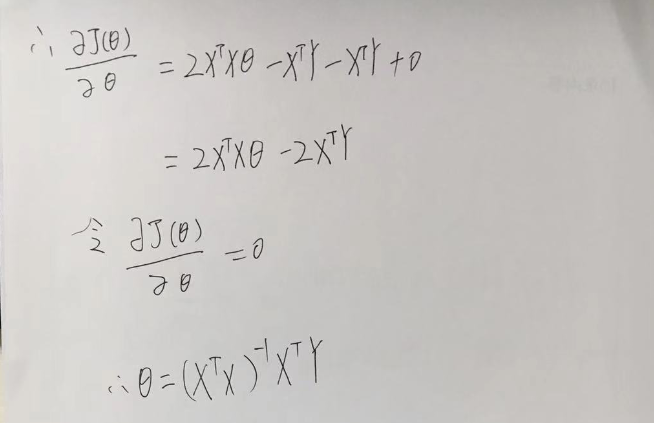 ∴ ∂J(θ)/∂θ = 2XᵀXθ - XᵀY - XᵀY + 0
= 2XᵀXθ - 2XᵀY
令 ∂J(θ)/∂θ = 0
∴ θ = (XᵀX)⁻¹XᵀY